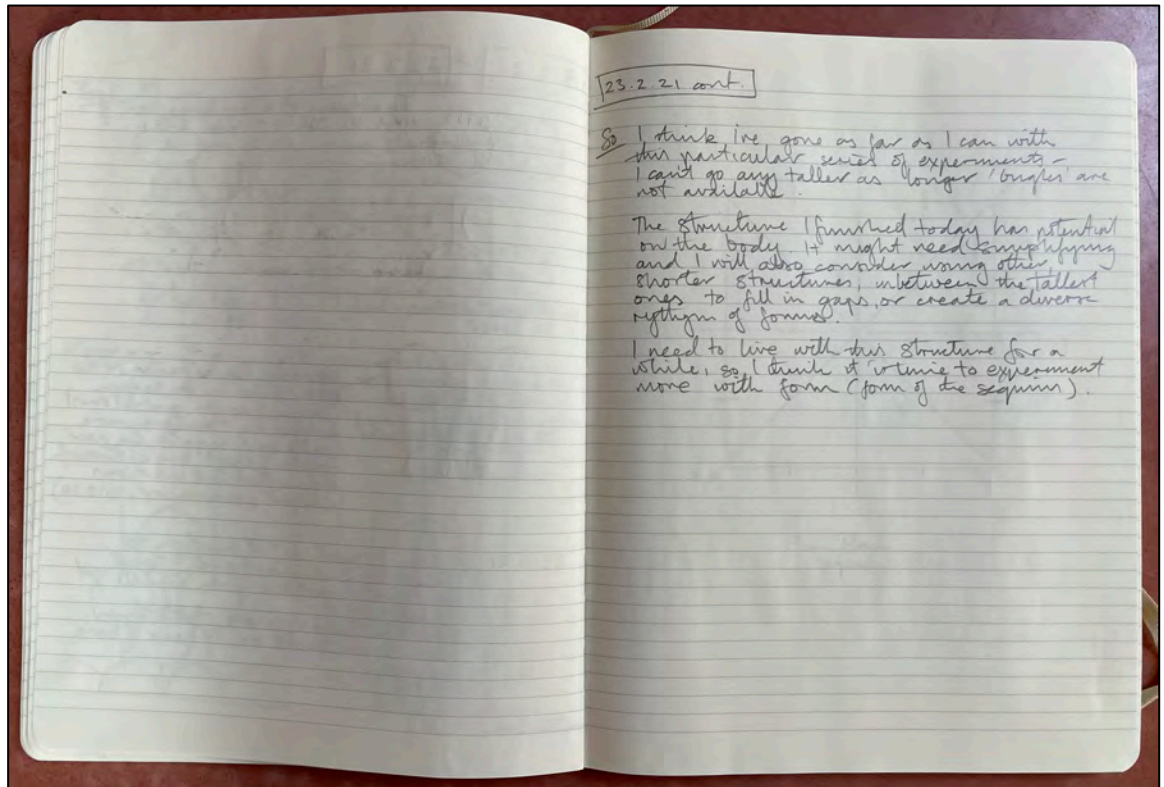 23.2.21 cont.
So I think Ive gone as far as I can with
this particular series of experiments -
I can't go any taller as longer 'bugles' are
not available.
The structure I finished today has potential
on the body. It might need simplifying
and I will also consider using other,
shorter structures, inbetween the tallest
ones to fill in gaps, or create a diverse
rythym of forms.
I need to live with this structure for a
while, so I think it's time to experiment
more with form (form of the sequins).